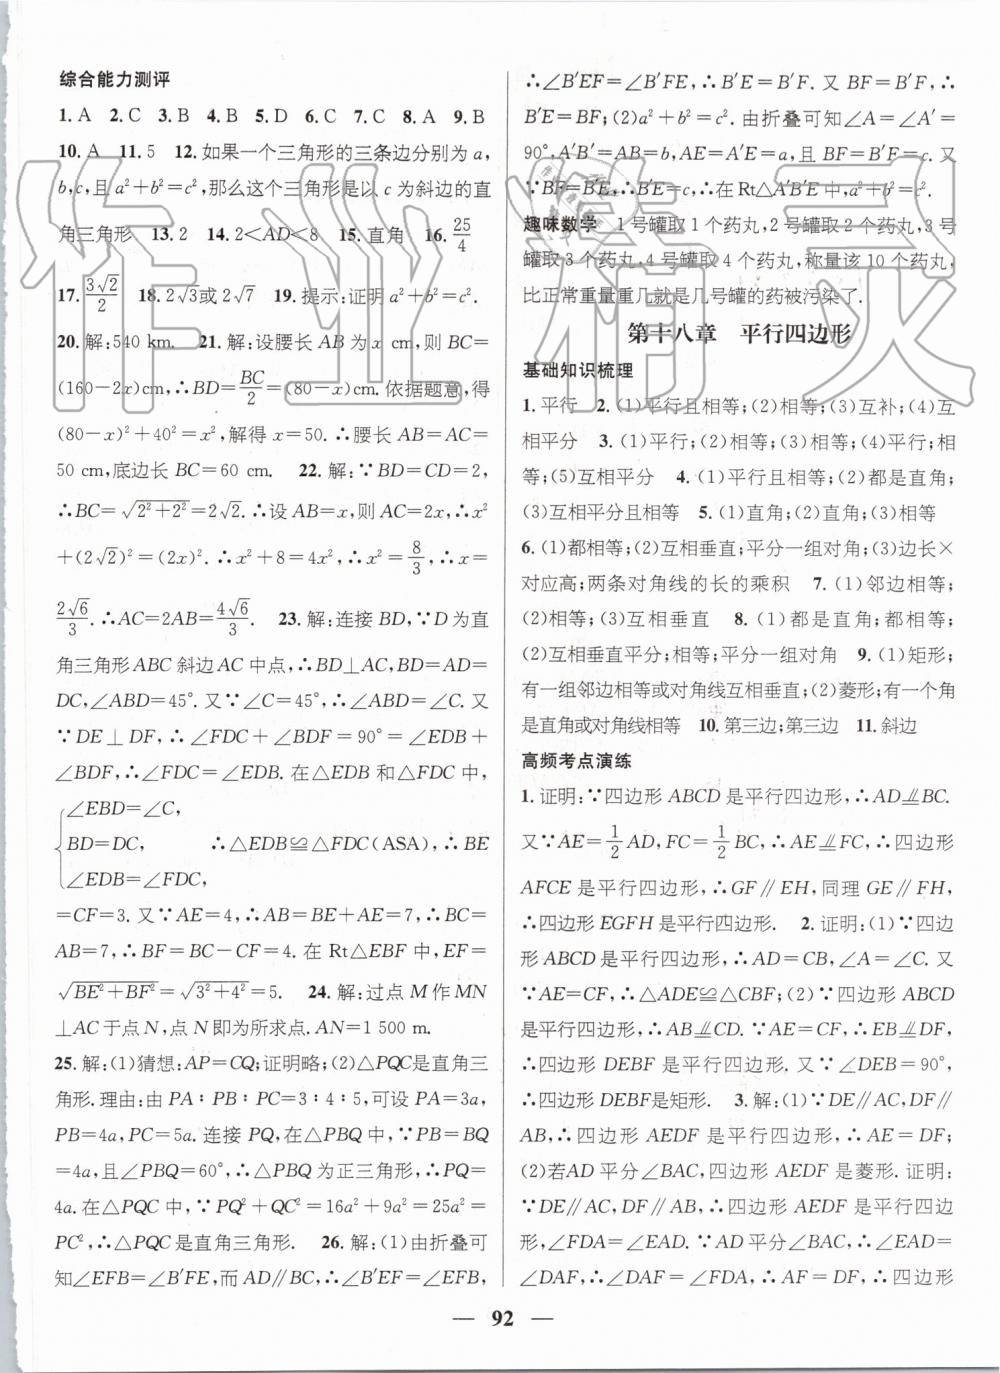 综合能力测评
1. A 2. C 3. B 4. B 5. D 6. C 7. C 8. A 9. B
10. A 11. 5 12. 如果一个三角形的三条边分别为 a,
b,c,且 a²+b²=c²,那么这个三角形是以 c 为斜边的直
角三角形 13. 2 14. 2<AD<8 15. 直角 16. 25/4
17. 3√2/2 18. 2√3或 2√7 19. 提示:证明 a²+b²=c².
20. 解:540 km. 21. 解:设腰长 AB 为 x cm,则 BC=
(160-2x)cm,∴BD=BC/2=(80-x)cm.依据题意,得
(80-x)²+40²=x²,解得 x=50.∴腰长 AB=AC=
50 cm,底边长 BC=60 cm. 22. 解:∵BD=CD=2,
∴BC=√(2²+2²)=2√2.∴设 AB=x,则 AC=2x,∴x²
+(2√2)²=(2x)².∴x²+8=4x²,∴x²=8/3,∴x=
2√6/3.∴AC=2AB=4√6/3. 23. 解:连接 BD,∵D 为直
角三角形 ABC 斜边 AC 中点,∴BD⊥AC,BD=AD=
DC,∠ABD=45°.又∵∠C=45°,∴∠ABD=∠C.又
∵DE⊥DF,∴∠FDC+∠BDF=90°=∠EDB+
∠BDF,∴∠FDC=∠EDB.在△EDB 和△FDC 中,
∠EBD=∠C,
BD=DC, ∴△EDB≌△FDC(ASA),∴BE
∠EDB=∠FDC,
=CF=3.又∵AE=4,∴AB=BE+AE=7,∴BC=
AB=7,∴BF=BC-CF=4.在 Rt△EBF 中,EF=
√(BE²+BF²)=√(3²+4²)=5. 24. 解:过点 M 作 MN
⊥AC于点 N,点 N 即为所求点.AN=1 500 m.
25. 解:(1)猜想:AP=CQ;证明略;(2)△PQC是直角三
角形.理由:由 PA∶PB∶PC=3∶4∶5,可设 PA=3a,
PB=4a,PC=5a.连接 PQ,在△PBQ 中,∵PB=BQ
=4a,且∠PBQ=60°,∴△PBQ 为正三角形,∴PQ=
4a.在△PQC 中,∵PQ²+QC²=16a²+9a²=25a²=
PC²,∴△PQC是直角三角形. 26. 解:(1)由折叠可
知∠EFB=∠B′FE,而 AD∥BC,∴∠B′EF=∠EFB,
∴∠B′EF=∠B′FE,∴B′E=B′F.又 BF=B′F,∴
B′E=BF;(2)a²+b²=c².由折叠可知∠A=∠A′=
90°,A′B′=AB=b,AE=A′E=a,且 BF=B′F=c.又
∵BF=B′E,∴B′E=c,∴在 Rt△A′B′E 中,a²+b²=c².
趣味数学 1 号罐取 1 个药丸,2 号罐取 2 个药丸,3 号
罐取 3 个药丸,4 号罐取 4 个药丸,称量该 10 个药丸,
比正常重量重几就是几号罐的药被污染了.
第十八章 平行四边形
基础知识梳理
1. 平行 2. (1)平行且相等;(2)相等;(3)互补;(4)互
相平分 3. (1)平行;(2)相等;(3)相等;(4)平行;相
等;(5)互相平分 4. (1)平行且相等;(2)都是直角;
(3)互相平分且相等 5. (1)直角;(2)直角;(3)相等
6. (1)都相等;(2)互相垂直;平分一组对角;(3)边长×
对应高;两条对角线的长的乘积 7. (1)邻边相等;
(2)相等;(3)互相垂直 8. (1)都是直角;都相等;
(2)互相垂直平分;相等;平分一组对角 9. (1)矩形;
有一组邻边相等或对角线互相垂直;(2)菱形;有一个角
是直角或对角线相等 10. 第三边;第三边 11. 斜边
高频考点演练
1. 证明:∵四边形 ABCD 是平行四边形,∴AD⫽BC.
又∵AE=1/2 AD,FC=1/2 BC,∴AE⫽FC,∴四边形
AFCE 是平行四边形,∴GF∥EH,同理 GE∥FH,
∴四边形 EGFH 是平行四边形. 2. 证明:(1)∵四边
形 ABCD 是平行四边形,∴AD=CB,∠A=∠C.又
∵AE=CF,∴△ADE≌△CBF;(2)∵四边形 ABCD
是平行四边形,∴AB⫽CD.∵AE=CF,∴EB⫽DF,
∴四边形 DEBF 是平行四边形.又∵∠DEB=90°,
∴四边形 DEBF是矩形. 3. 解:(1)∵DE∥AC,DF∥
AB,∴四边形 AEDF 是平行四边形,∴AE=DF;
(2)若AD 平分∠BAC,四边形 AEDF 是菱形.证明:
∵DE∥AC,DF∥AB,∴四边形 AEDF 是平行四边
形,∠FDA=∠EAD.∵AD 平分∠BAC,∴∠EAD=
∠DAF,∴∠DAF=∠FDA,∴AF=DF,∴四边形
— 92 —
作业精灵